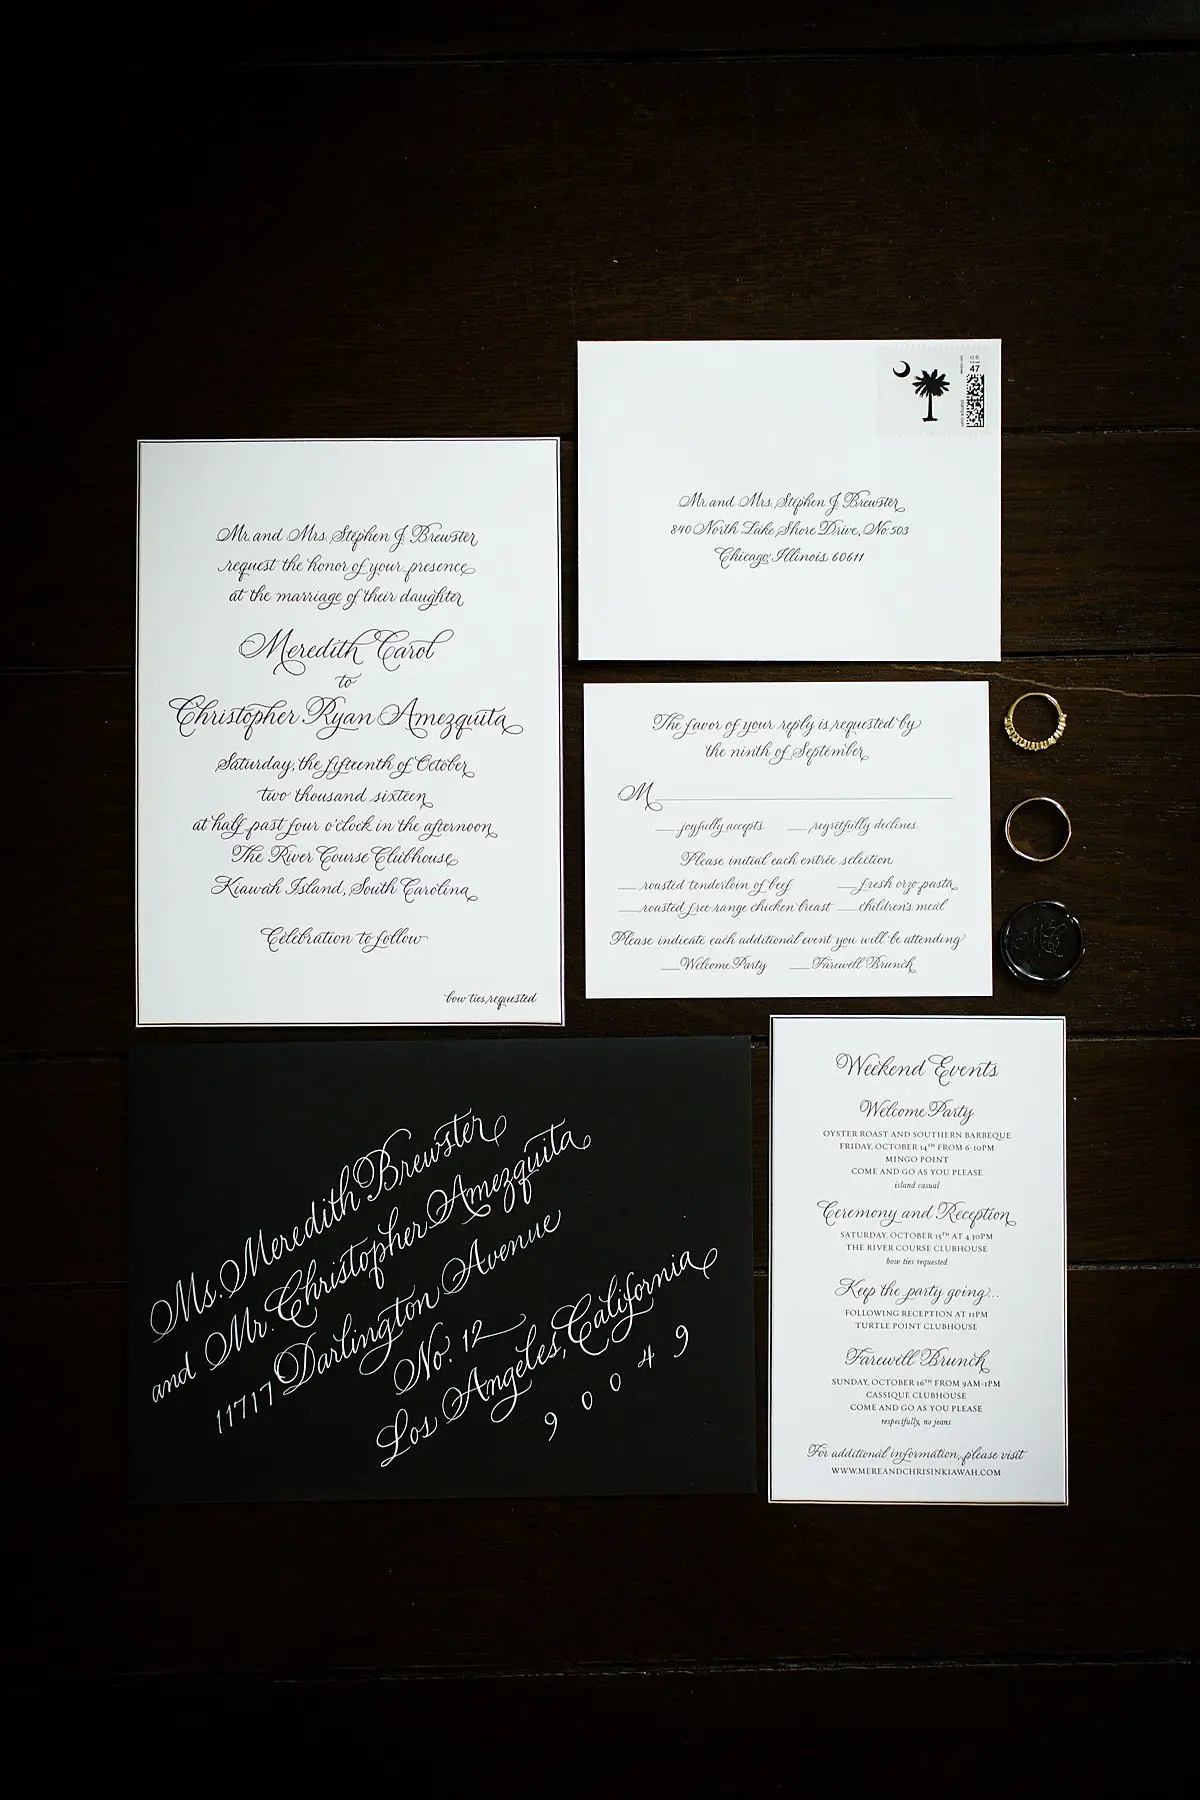 Mr. and Mrs. Stephen J. Brewster
request the honor of your presence
at the marriage of their daughter
Meredith Carol
to
Christopher Ryan Amezquita
Saturday, the fifteenth of October
two thousand sixteen
at half past four o'clock in the afternoon
The River Course Clubhouse
Kiawah Island, South Carolina
Celebration to follow
bow ties requested
U.S.
47
stamps.com
Mr. and Mrs. Stephen J. Brewster
840 North Lake Shore Drive, No. 503
Chicago, Illinois 60611
The favor of your reply is requested by
the ninth of September
M
joyfully accepts regretfully declines
Please initial each entrée selection
roasted tenderloin of beef fresh orzo pasta
roasted free-range chicken breast children's meal
Please indicate each additional event you will be attending
Welcome Party Farewell Brunch
Ms. Meredith Brewster
and Mr. Christopher Amezquita
11717 Darlington Avenue
No. 12
Los Angeles, California
90049
Weekend Events
Welcome Party
OYSTER ROAST AND SOUTHERN BARBEQUE
FRIDAY, OCTOBER 14TH FROM 6-10PM
MINGO POINT
COME AND GO AS YOU PLEASE
island casual
Ceremony and Reception
SATURDAY, OCTOBER 15TH AT 4:30PM
THE RIVER COURSE CLUBHOUSE
bow ties requested
Keep the party going...
FOLLOWING RECEPTION AT 11PM
TURTLE POINT CLUBHOUSE
Farewell Brunch
SUNDAY, OCTOBER 16TH FROM 9AM-1PM
CASSIQUE CLUBHOUSE
COME AND GO AS YOU PLEASE
respectfully, no jeans
For additional information, please visit
WWW.MEREANDCHRISINKIAWAH.COM